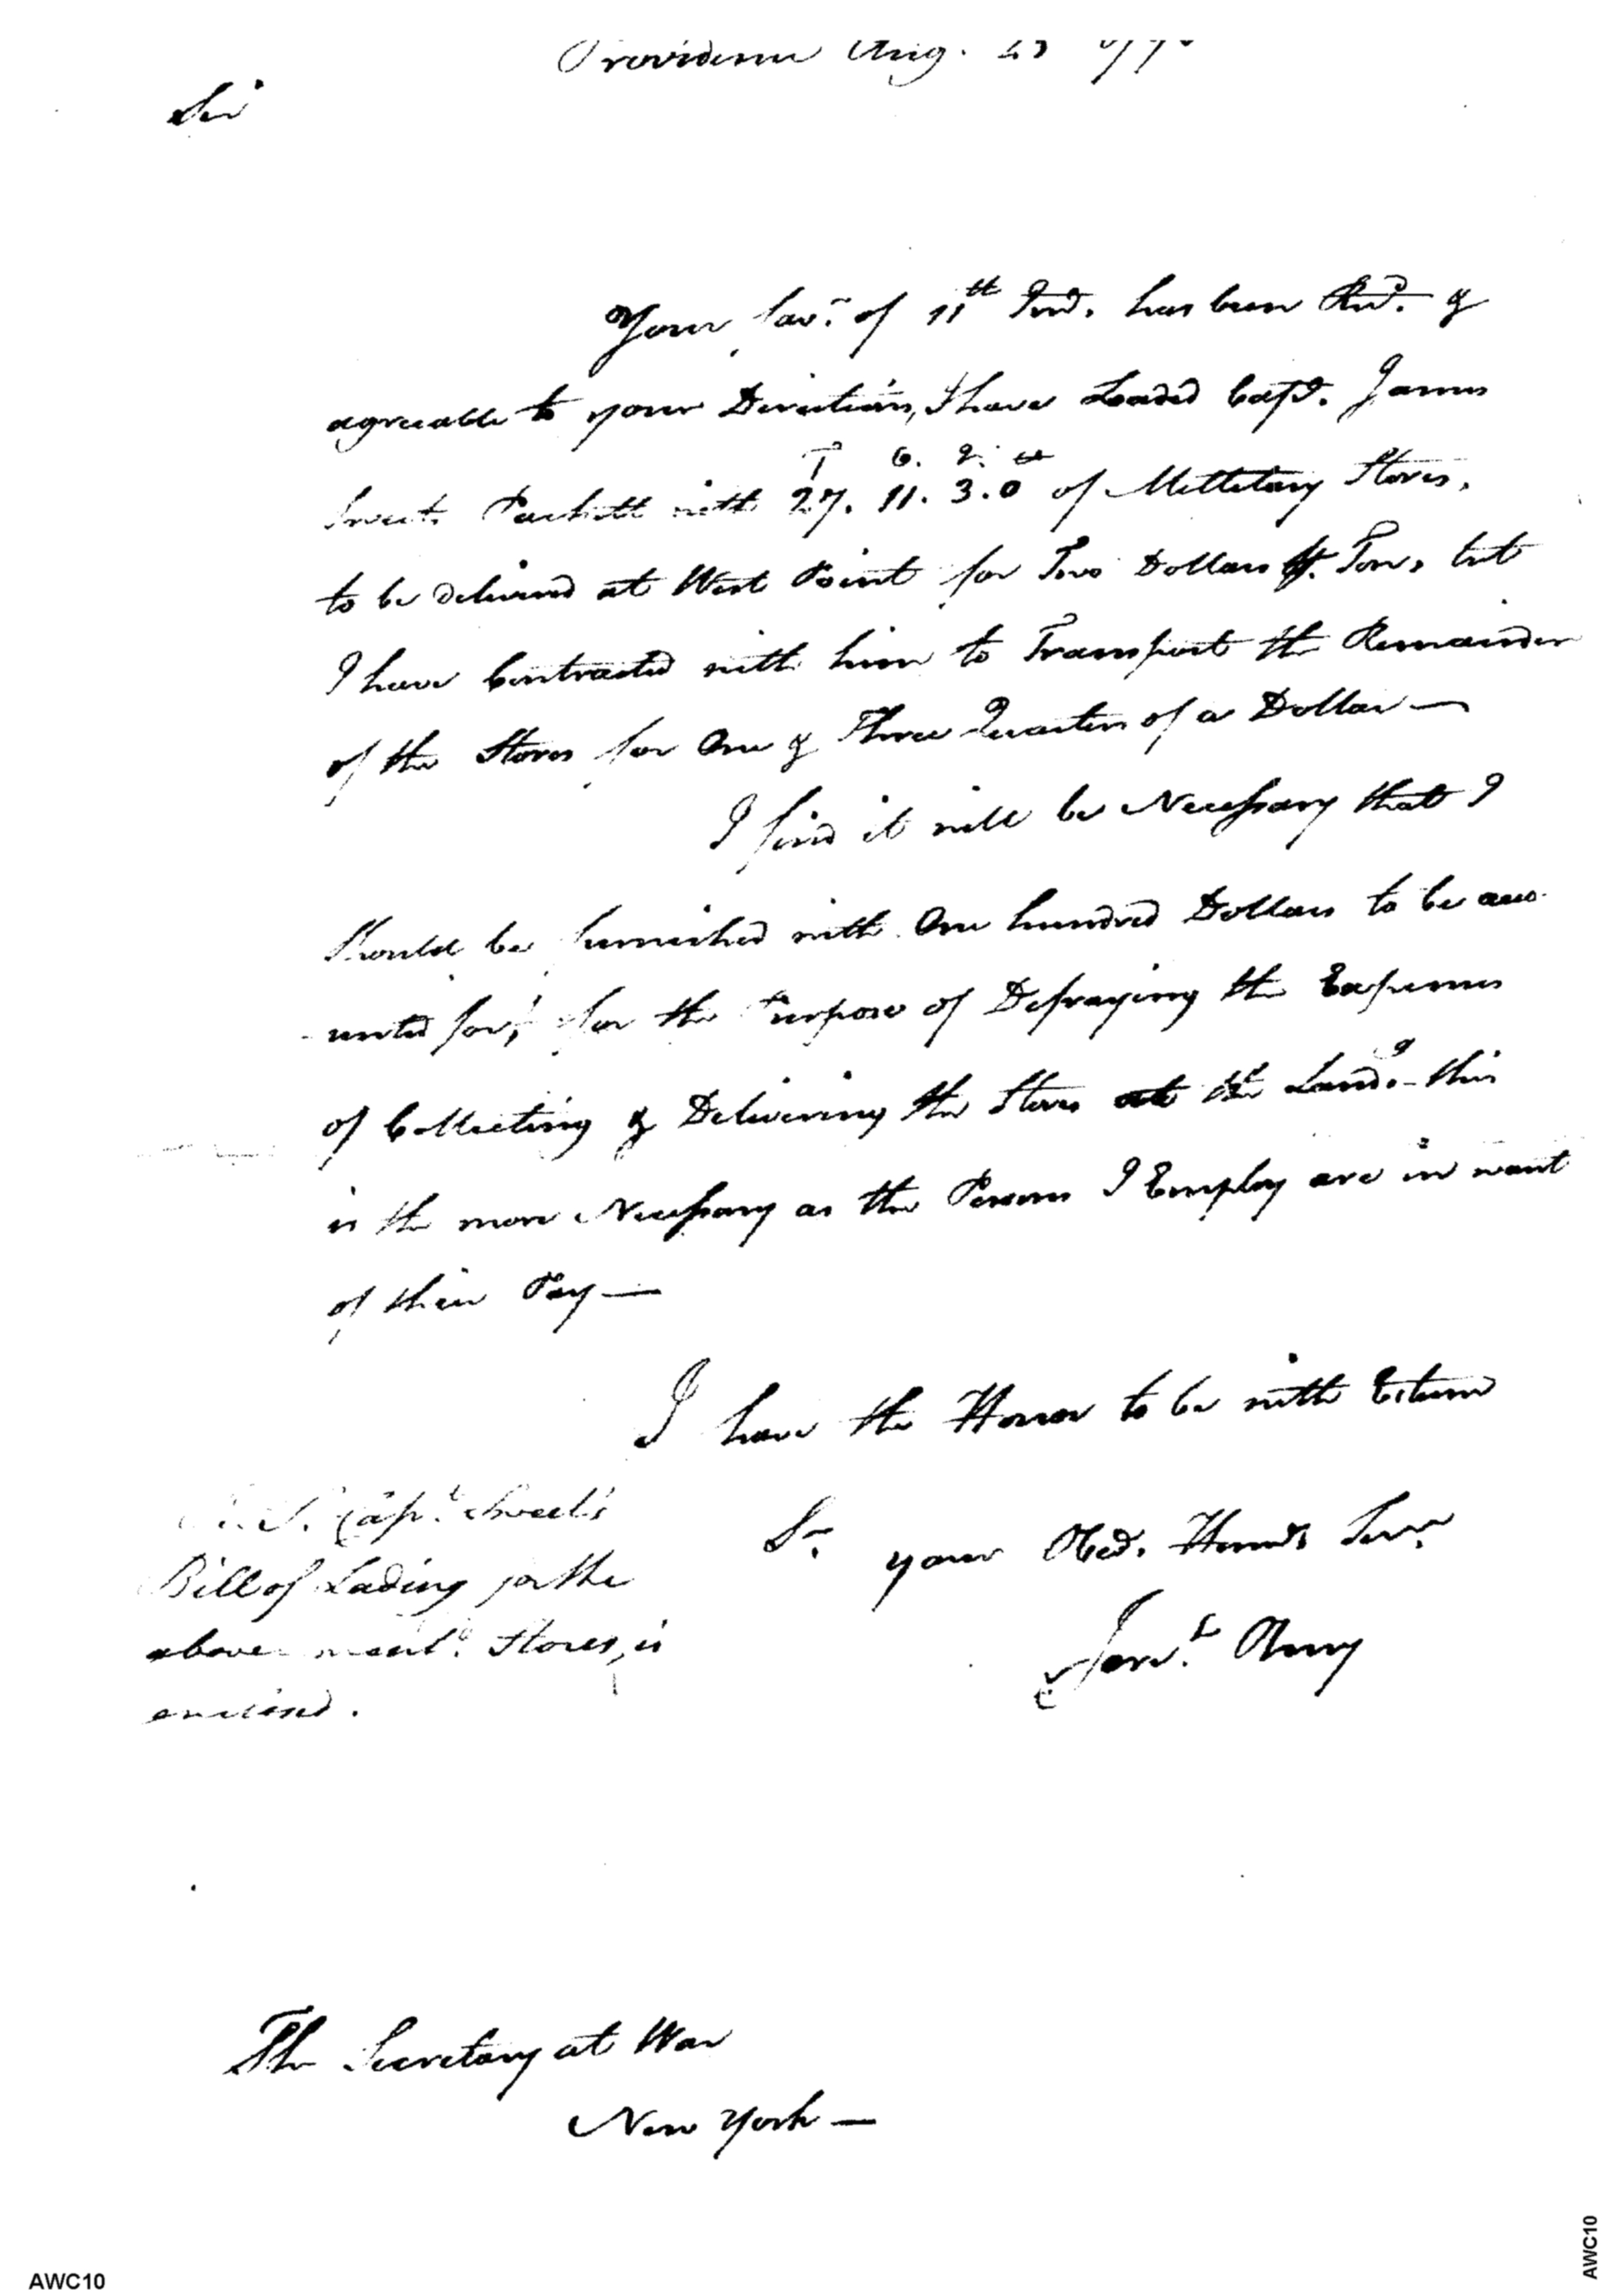 Providence Aug. 23
Sir
Your favr. of 11th Ind. has been Recd. &
agreeable to your Directions, I have Loaded Capt. James
Sweets Packett with 27. 11. 3. 0 of Millitary Stores,
T C. q. lb
to be delivered at West Point for Two Dollars ⅌. Ton, but
I have Contracted with him to Transport the Remainder
of the Stores for One & Three Quarters of a Dollar —
I find it will be Necessary that I
Should be furnished with One hundred Dollars to be acco-
-unted for, for the Purpose of Defraying the Expenses
of Collecting & Delivering the Stores at the Landg. - this
is the more Necessary as the Persons I Employ are in want
of their Pay —
I have the Honor to be with Esteem
Sr. your Obed. Humb Serv.
Jerh. Olney
P.S. Capt. Sweet's
Bill of Lading for the
above ment.d Stores, is
enclosed.
The Secretary at War
New York —
AWC10
AWC10